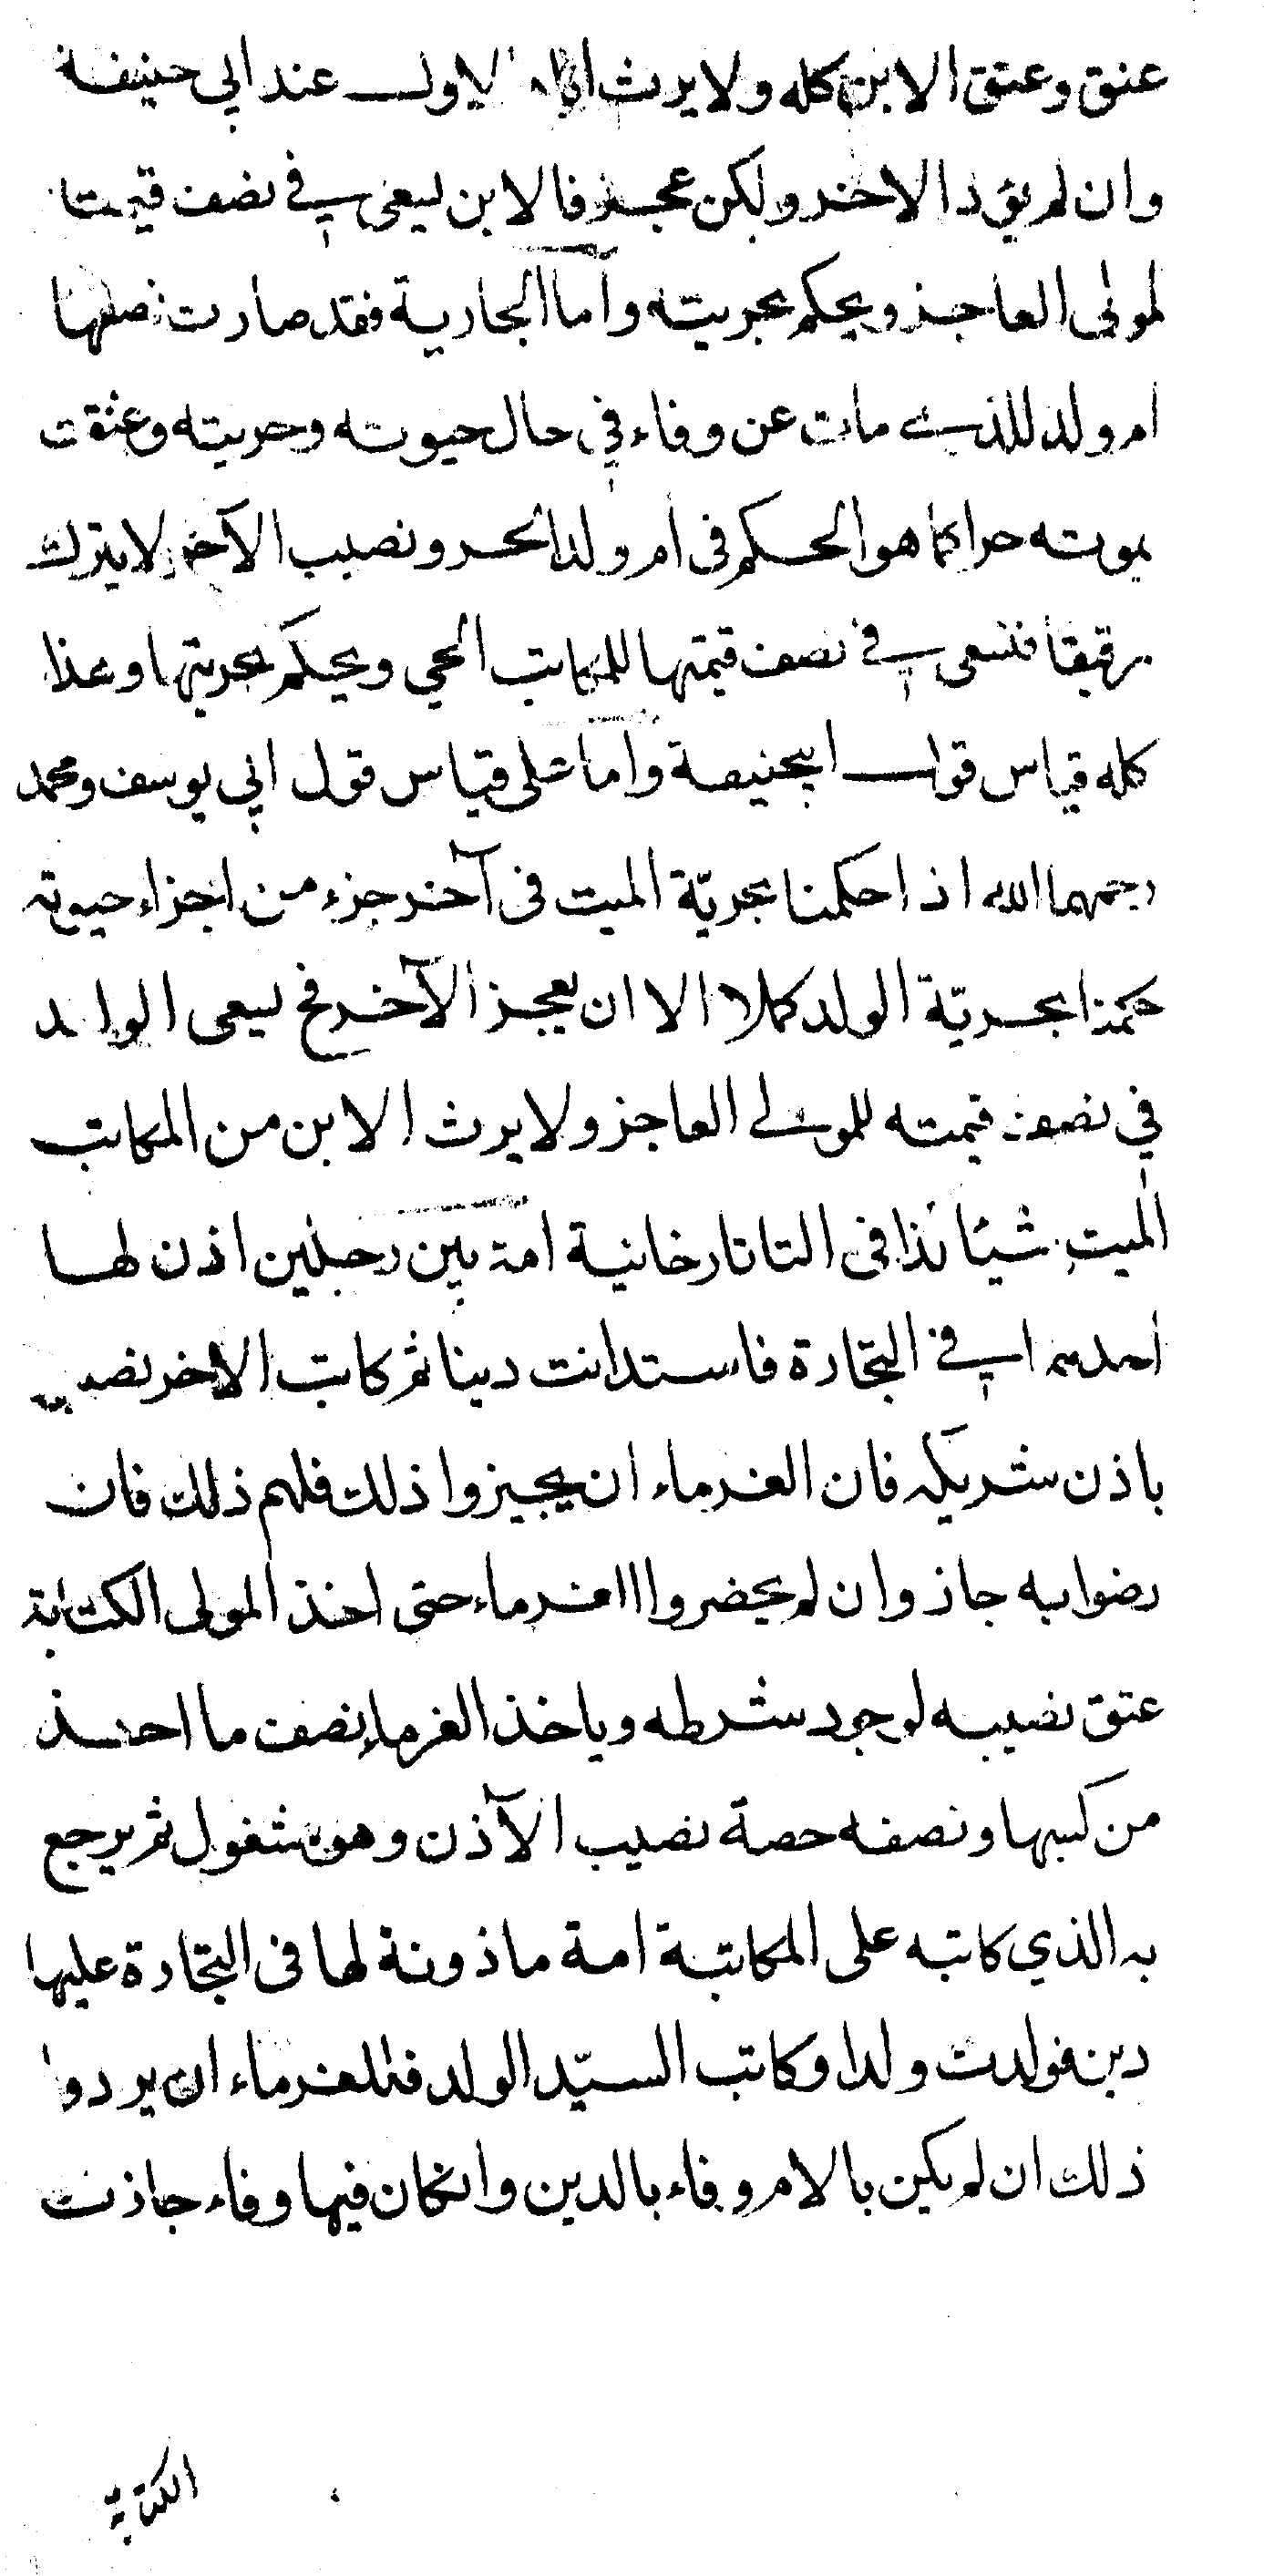 عتق وعتق الابن كله ولا يرث اباه الاول عند ابي حنيفة
وان لم يؤد الاخر ولكن عجز فالابن ليعى في نصف قيمته
لمولى العاجز ويحكم بحريته واما الجارية فقد صارت نصفها
ام ولد للذي مات عن وفاء في حال حيوته وحريته وعتقت
بموته حرا كما هو الحكم فى ام ولد الحر ونصيب الآخر لا يترك
رقيقا فتسعى في نصف قيمتها للمكاتب الحي ويحكم بحريتها وهذا
كله قياس قول ابيحنيفة واما على قياس قول ابي يوسف ومحمد
رحمهما الله اذا حكمنا بحريّة الميت فى آخر جزء من اجزاء حيوته
حكمنا بحريّة الولد كملا الا ان يعجز الآخر فح ليعى الولد
في نصف قيمته للمولى العاجز ولا يرث الابن من المكاتب
الميت شيئا كذا فى التاتارخانية امة بين رجلين اذن لها
احدهما في التجارة فاستدانت دينا ثم كاتب الاخر نصيبه
باذن شريكه فان الغرماء ان يجيزوا ذلك فلهم ذلك فان
رضوا به جاز وان لم يحضروا الغرماء حتى اخذ المولى الكتابة
عتق نصيبه لوجود شرطه وياخذ الغرماء نصف ما اخذ
من كسبها ونصفه حصة نصيب الآذن وهو مشغول ثم يرجع
به الذي كاتبه على المكاتبة امة ماذونة لها فى التجارة عليها
دين فولدت ولدا وكاتب السيّد الولد فللغرماء ان يردوا
ذلك ان لم يكن بالام وفاء بالدين وانكان فيها وفاء جازت
الكتابة